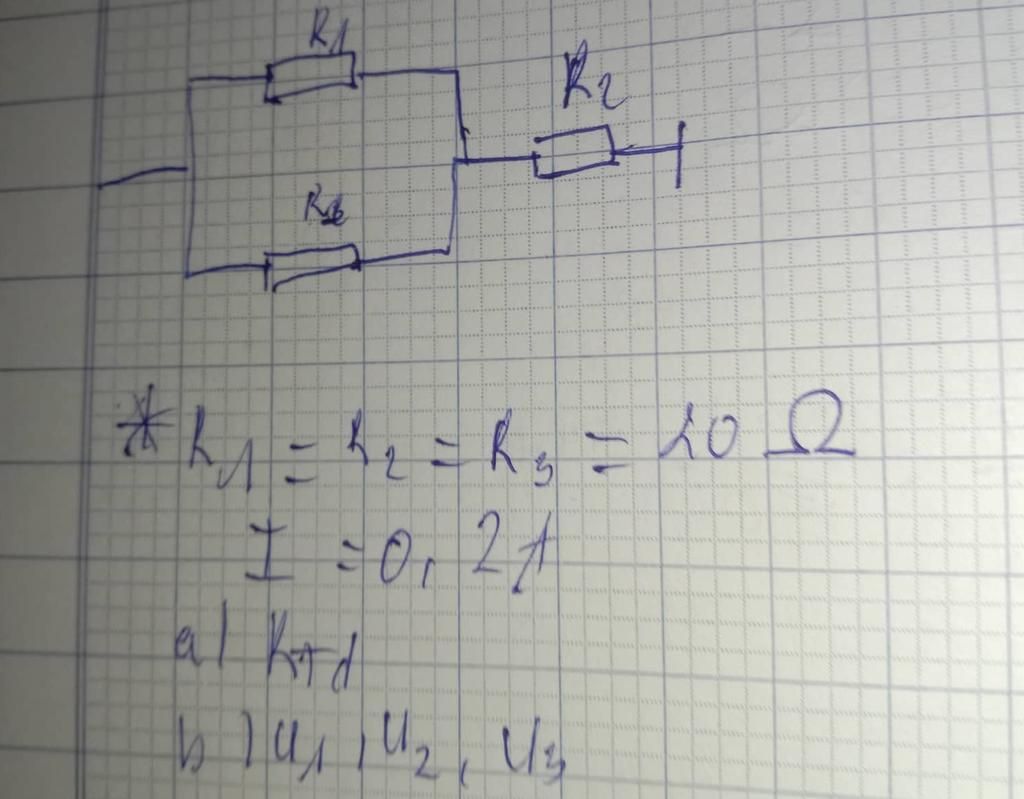 R1
R2
R3
* R1 = R2 = R3 = 20 Ω
I = 0, 2A
a) Rtđ
b) U1, U2, U3